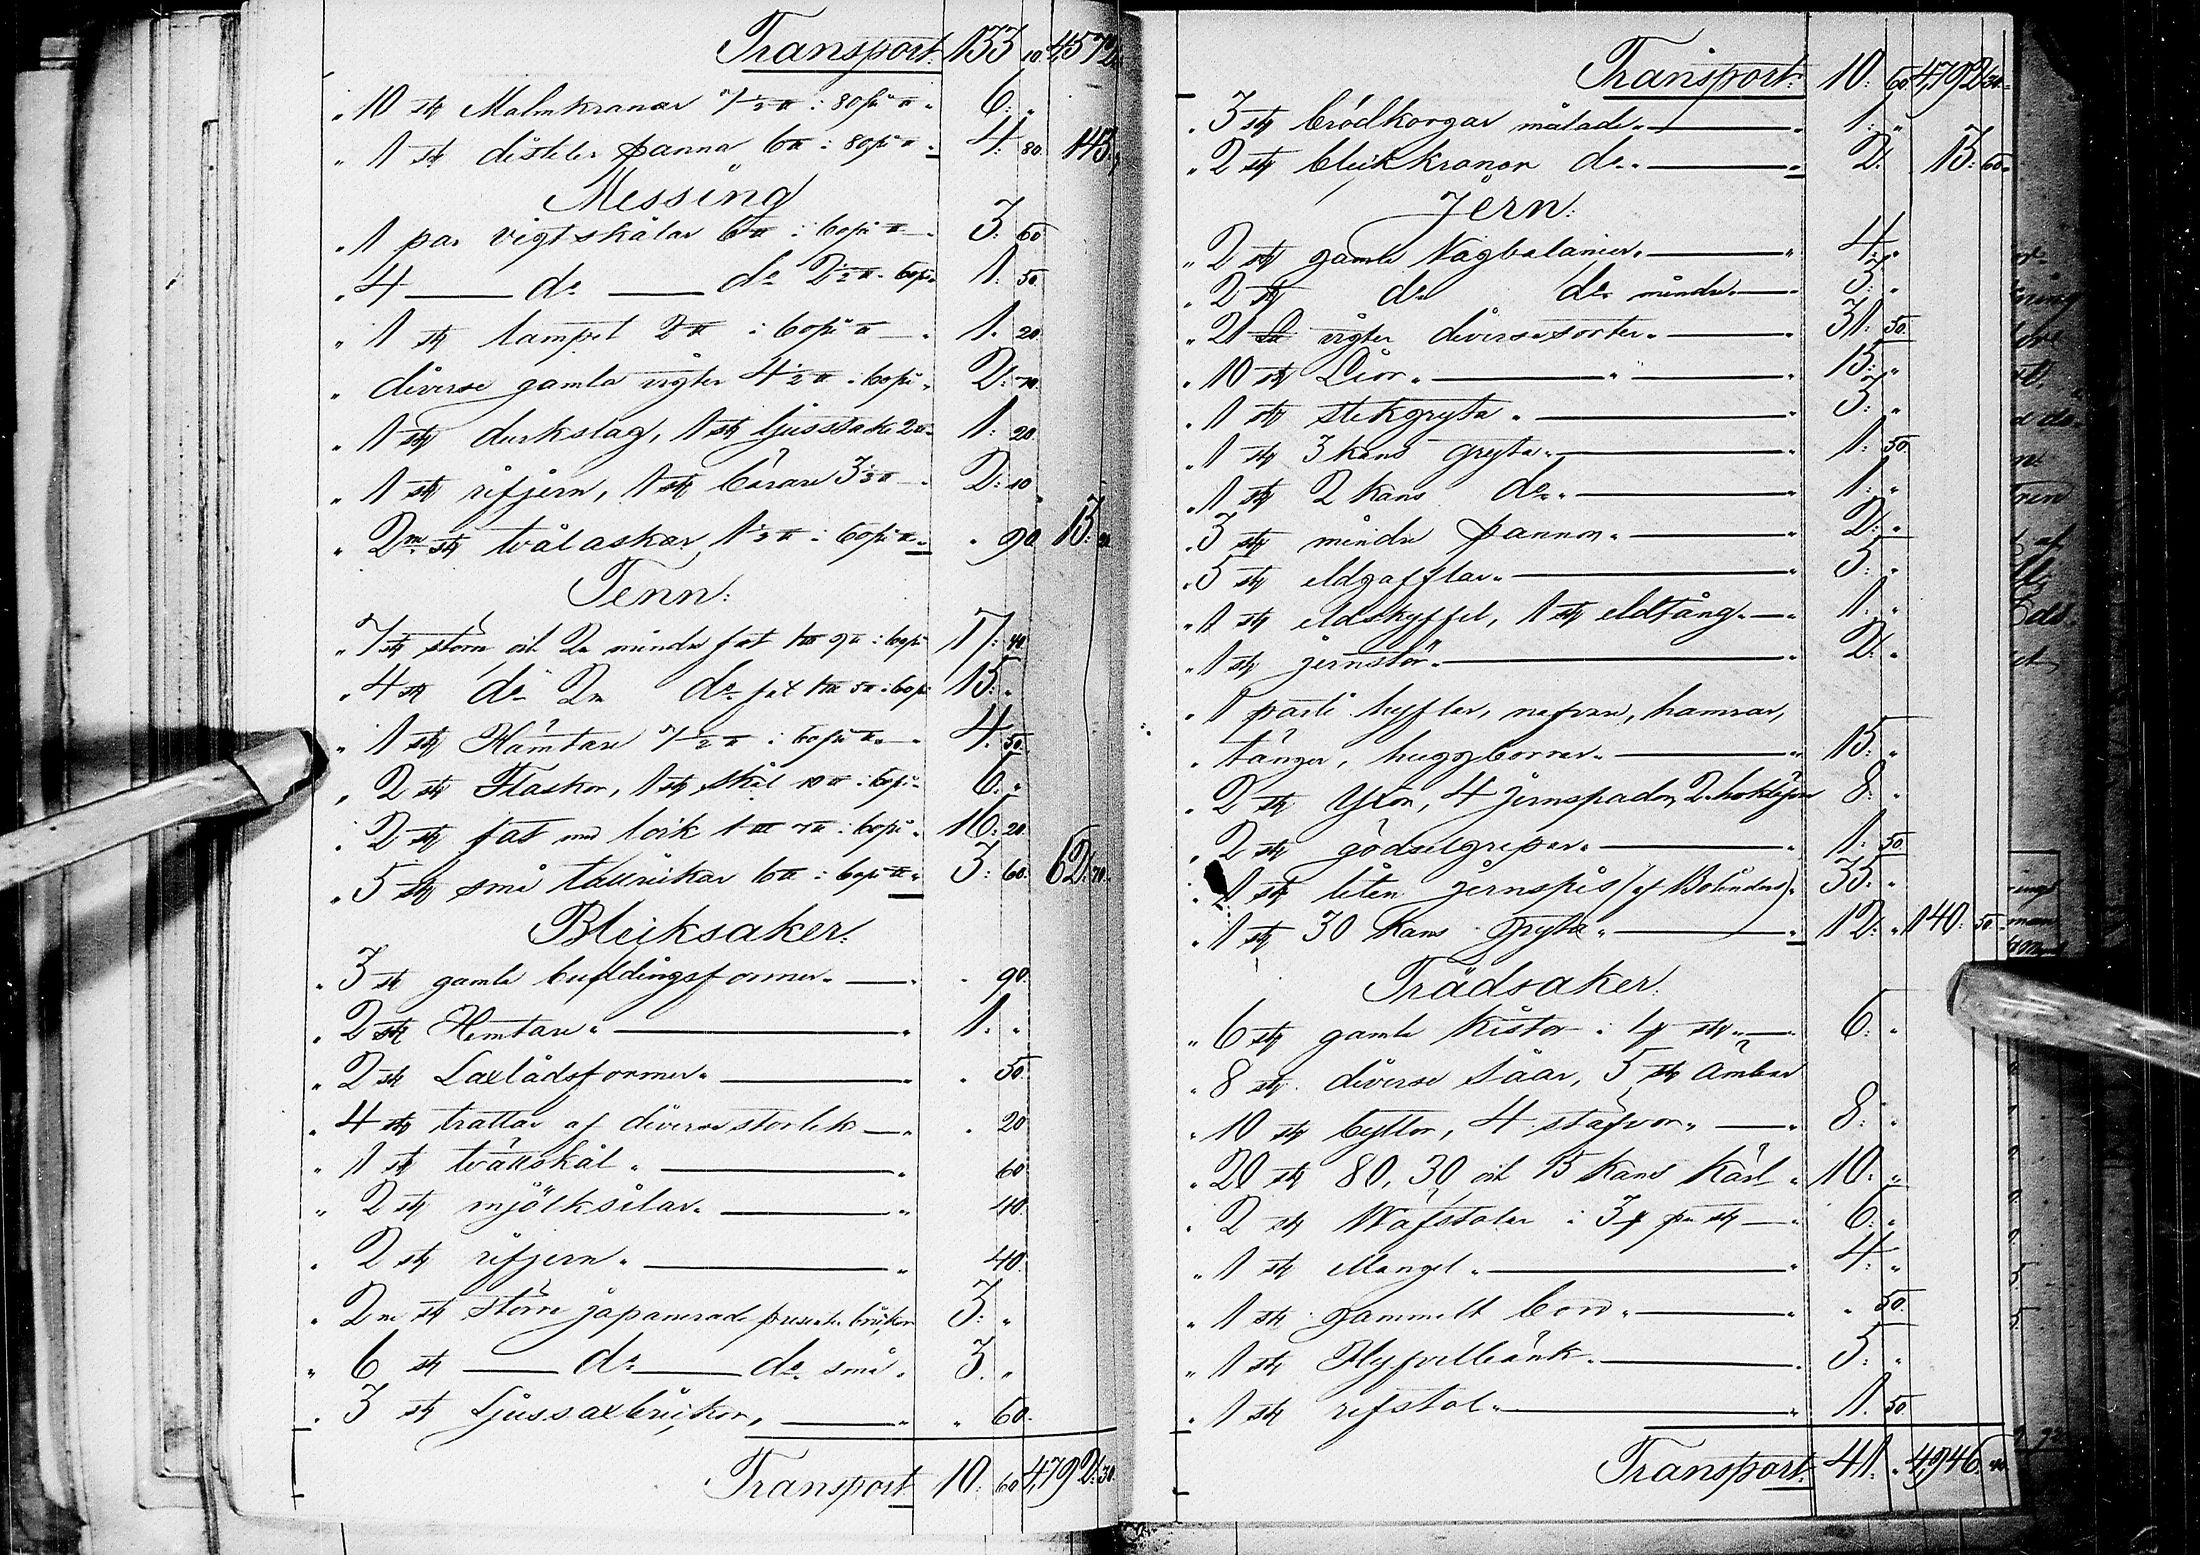 Transport. 133 10. 4,572
" 10 st Malmkranar 7 1/2 ℔ : 80 pr ℔ " 6: "
" 1 st destiler panna 6 ℔ : 80 pr ℔ " 4: 80. 143:
Messing
" 1 par vigtskålar 6 ℔ : 60 pr ℔ 3: 60
" 4 — do — do 2 1/2 ℔ 60 pr 1: 50
" 1 st lampet 2 ℔ : 60 pr ℔ 1. 20
" diverse gamla vigter 4 1/2 ℔ : 60 pr 2: 70.
" 1 st durkslag, 1 st ljusstake 2 ℔ 1: 20.
" 1 st rifjern, 1 st 3 1/2 ℔ 2: 10
" 2ne st tvålaskar 1 1/2 ℔ : 60 pr ℔ " 90. 13:
Tenn:
" 7 st större och 2 mindre fat 9 ℔ : 60 pr 17: 40
" 4 st do 2ne do fat 5 ℔ : 60 pr 15: "
" 1 st Hämtare 7 1/2 ℔ : 60 pr ℔ 4. 50.
" 2 st Flaskor, 1 st skål 10 ℔ : 60 pr 6: "
" 2 st fat med lock 7 ℔ : 60 pr 16: 20.
" 5 st små tallrikar 6 ℔ : 60 pr ℔ 3: 60. 62: 70.
Bleiksaker:
" 3 st gamla buddingsformer " " 90.
" 2 st Hemtare " 1. "
" 2 st Laxlådsformer " " 50.
" 4 st trattar af diverse storlek " 20
" 1 st tvättskål " 60
" 2 st mjölksilar " 40.
" 2 st rifjern " 40.
" 2ne st större japanerade presenter brickor 3: "
" 6 st — do — do små " 3. "
" 3 st Ljussaxbrickor " 60.
Transport 10. 60 4,792: 30.
Transport: 10: 60 4,792 30
" 3 st brödkorgar målade " 1: "
" 2 st bleikkronor do " 2: 13: 60.
Jern:
" 2 st gamla Vågbalanser " 4: "
" 2 st do do mindre 3: "
" 21 st vigter diverse sorter " 31: 50.
" 10 st Liar " 15: "
" 1 st stekgryta " 3: "
" 1 st 3 kans gryta " 1: 50.
" 1 st 2 kans do " 1: "
" 3 st mindre pannor " 2: "
" 5 st eldgafflar " 5: "
" 1 st eldskyffel, 1 st eldtång " 1: "
" 1 st jernstör " 2: "
" 1 parti hyflar, nafrare, hamrar,
" tänger, huggborrar " 15: "
" 2 st Yxor, 4 Jernspador, 2 8: "
" 2 st gödselgrepar " 1. 50.
" 1 st liten Jernspis (af Bolinders) " 35: "
" 1 st 30 kans Gryta " 12: " 140: 50.
Trädsaker:
" 6 st gamla kistor : 1 st " 6: "
" 8 st diverse såar, 5 st Ämbar
" 10 st byttor, 4 stäfvor " 8: "
" 20 st 80, 30 och 15 kans Kärl " 10: "
" 2 st Wäfstolar : 3 pr st 6: "
" 1 st Mangel " 4. "
" 1 st gammelt bord " " 50.
" 1 st Hyfvelbänk " 5: "
" 1 st refstol " 1. 50
Transport: 41: " 4,946. 40